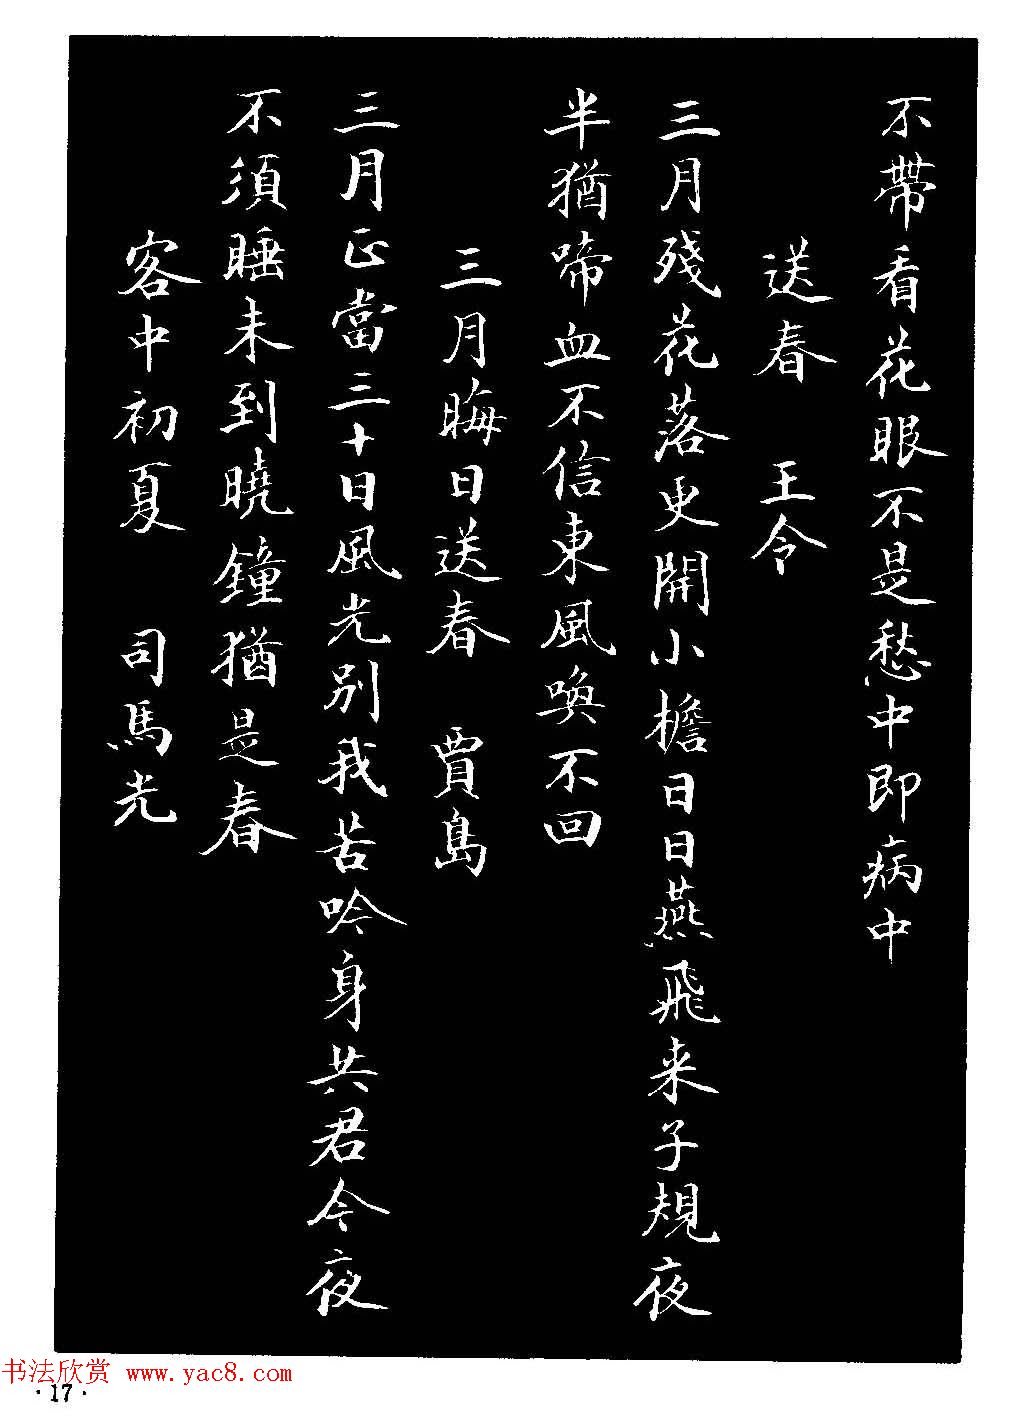 不帶看花眼不是愁中即病中
送春　王令
三月殘花落更開小檐日日燕飛来子規夜
半猶啼血不信東風喚不回
三月晦日送春　賈島
三月正當三十日風光別我苦吟身共君今夜
不須睡未到曉鐘猶是春
客中初夏　司馬光
书法欣赏 www.yac8.com
·17·